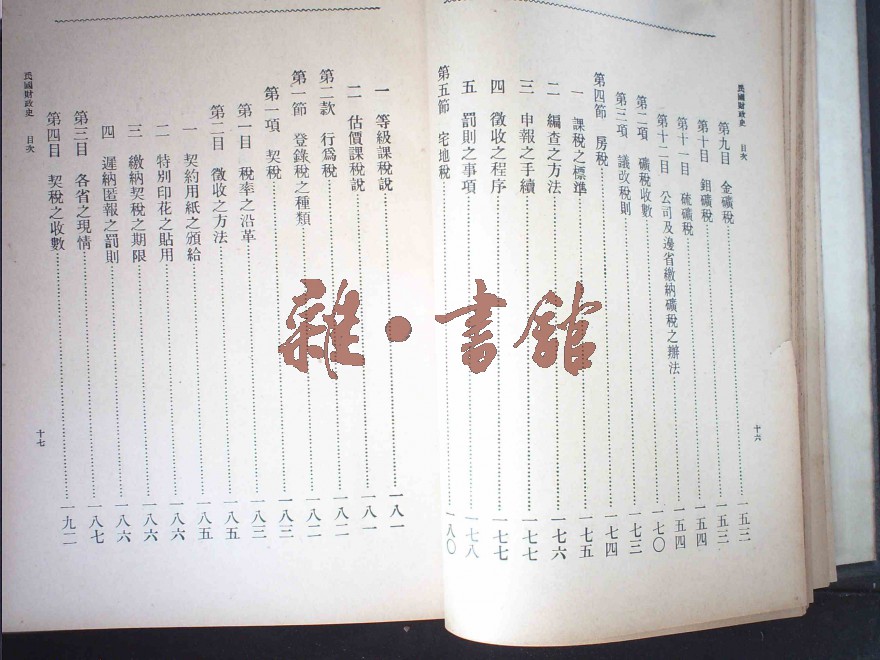 民國財政史 目次
第九目 金礦稅……一五三
第十目 鉬礦稅……一五三
第十一目 硫礦稅……一五四
第十二目 公司及邊省繳納礦稅之辦法……一五四
第二項 礦稅收數……一七〇
第三項 議改稅則……一七三
第四節 房稅……一七四
一 課稅之標準……一七五
二 編查之方法……一七六
三 申報之手續……一七七
四 徵收之程序……一七七
五 罰則之事項……一七八
第五節 宅地稅……一八〇
十六
一 等級課稅說……一八一
二 估價課稅說……一八一
第二款 行為稅……一八二
第一節 登錄稅之種類……一八二
第一項 契稅……一八三
第一目 稅率之沿革……一八三
第二目 徵收之方法……一八五
一 契約用紙之頒給……一八五
二 特別印花之貼用……一八六
三 繳納契稅之期限……一八六
四 遲納匿報之罰則……一八六
第三目 各省之現情……一八七
第四目 契稅之收數……一九二
民國財政史 目次
十七
雜·書館